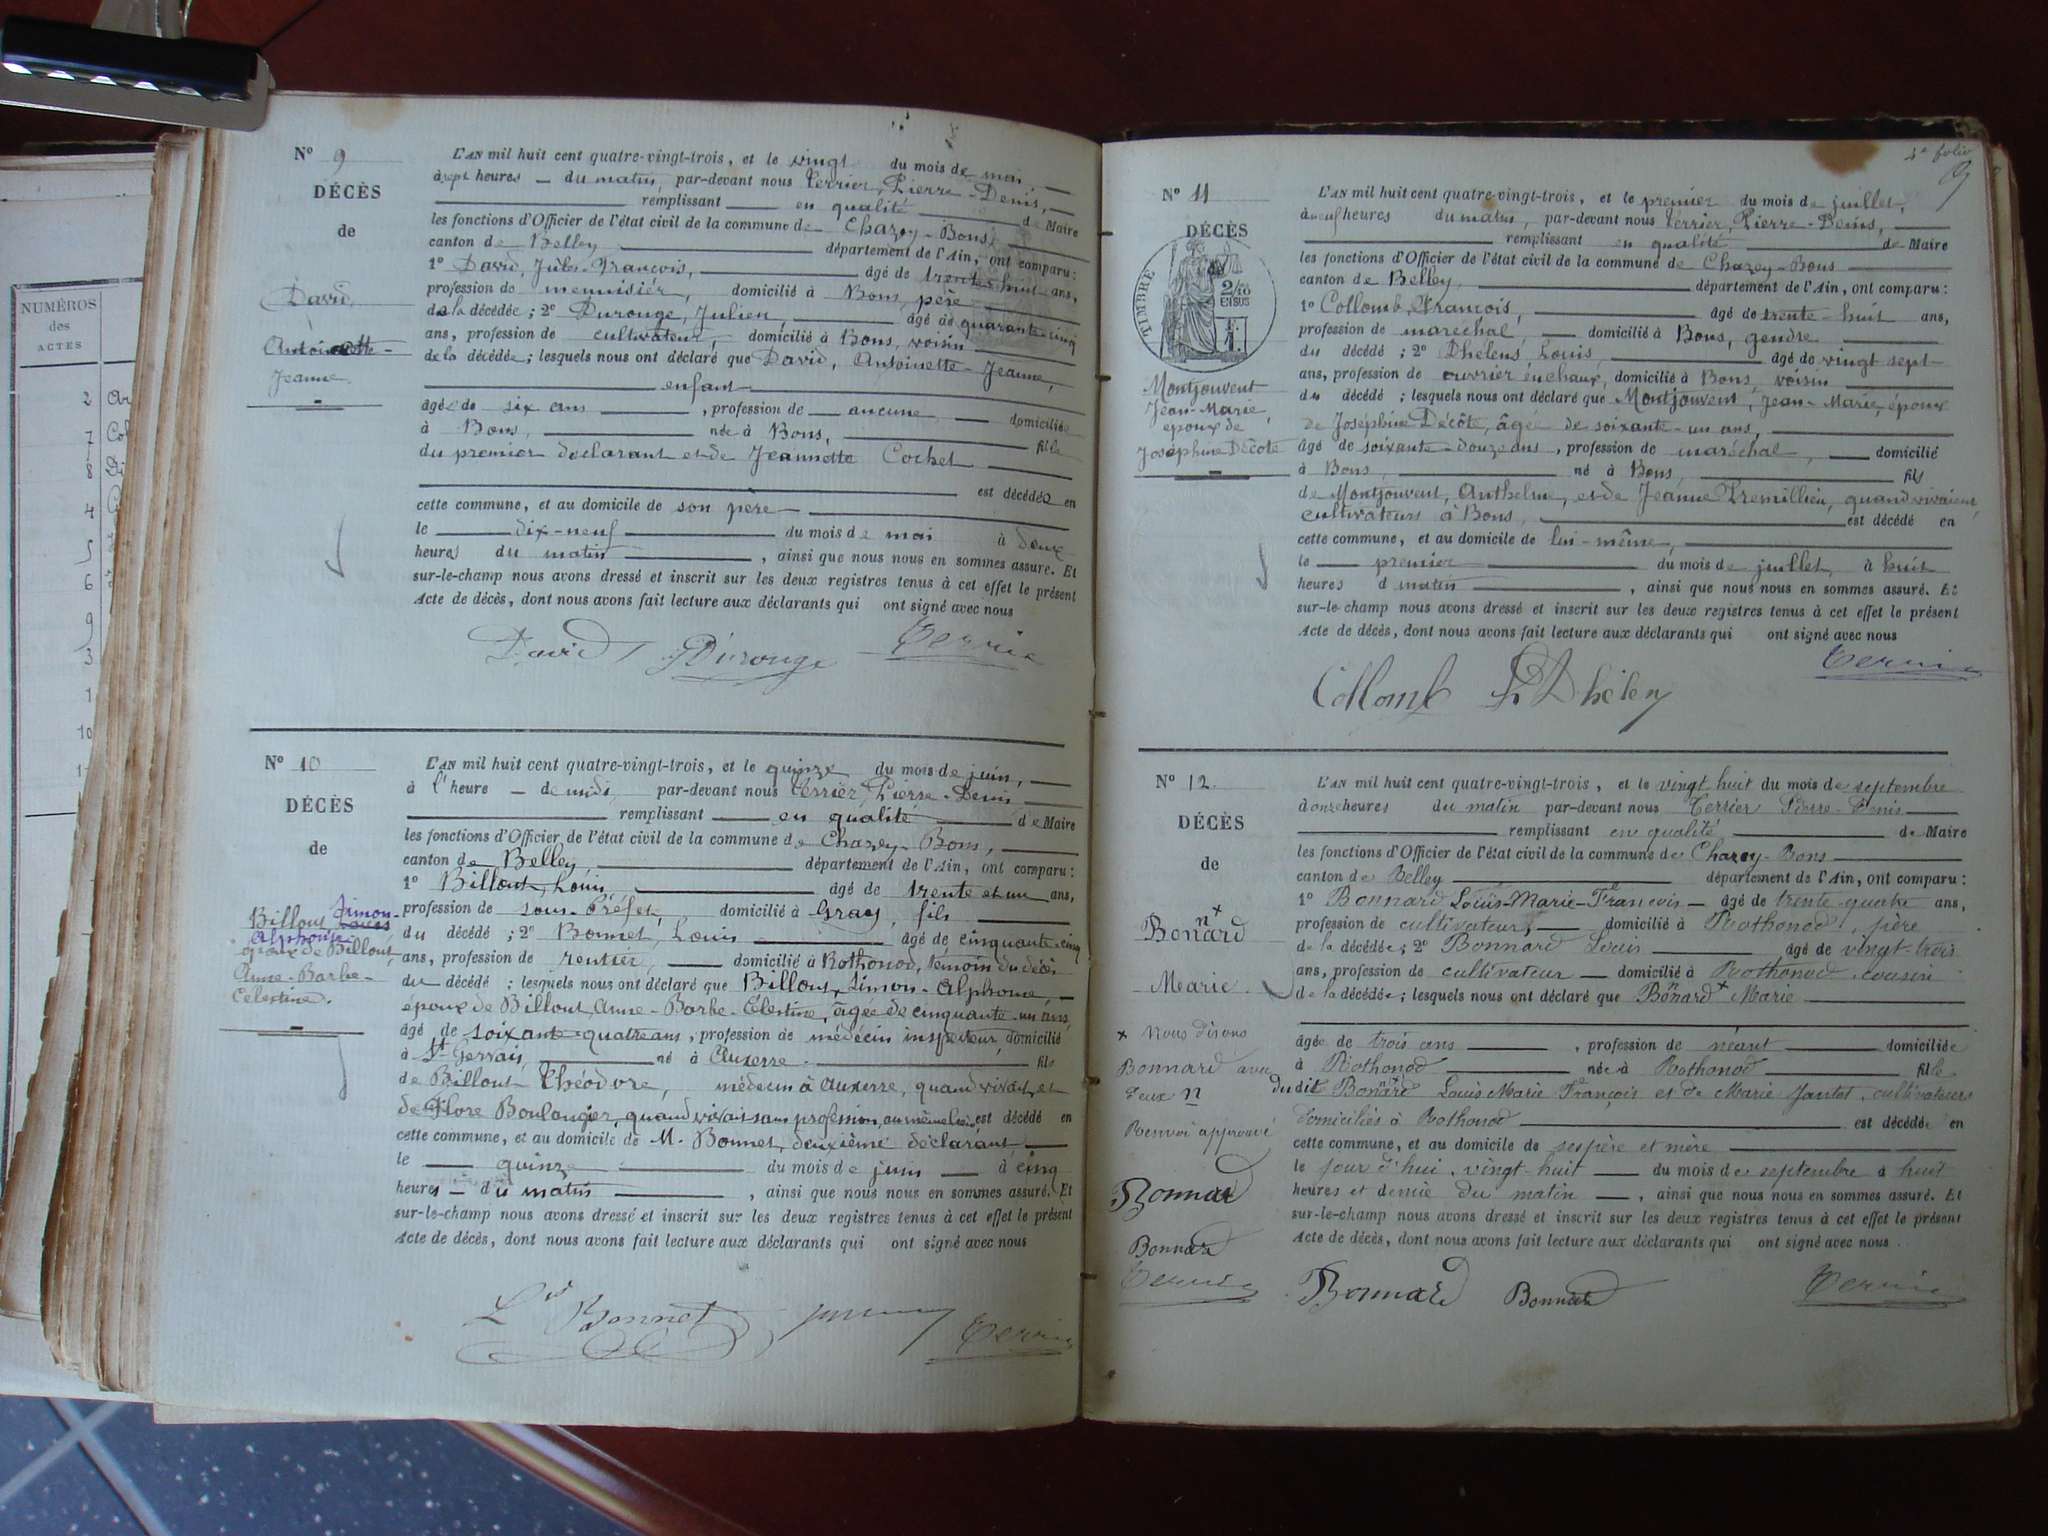 NUMÉROS
des
ACTES
2
7
8
4
5
6
9
3
1
10
N° 9
DÉCÈS
de
David,
Antoinette-
Jeanne.
L'AN mil huit cent quatre-vingt-trois, et le vingt du mois de mai,
à sept heures du matin, par-devant nous Terrier, Pierre-Denis,
remplissant en qualité de Maire
les fonctions d'Officier de l'état civil de la commune de Chazey-Bons,
canton de Belley département de l'Ain, ont comparu :
1° David, Jules-François, âgé de trente-huit ans,
profession de menuisier, domicilié à Bons, père
de la décédée ; 2° Durouge, Julien, âgé de quarante-cinq
ans, profession de cultivateur, domicilié à Bons, voisin
de la décédée ; lesquels nous ont déclaré que David, Antoinette-Jeanne,
enfant
âgée de six ans, profession de aucune domiciliée
à Bons, née à Bons, fille
du premier déclarant et de Jeannette Cochet
est décédée en
cette commune, et au domicile de son père
le dix-neuf du mois de mai à deux
heures du matin, ainsi que nous nous en sommes assuré. Et
sur-le-champ nous avons dressé et inscrit sur les deux registres tenus à cet effet le présent
Acte de décès, dont nous avons fait lecture aux déclarants qui ont signé avec nous
David Durouge Terrier
N° 10
DÉCÈS
de
Billout Simon-
Louis
Alphonse
époux de Billout,
Anne-Barbe-
Célestine.
L'AN mil huit cent quatre-vingt-trois, et le quinze du mois de juin,
à l'heure de midi, par-devant nous Terrier, Pierre-Denis
remplissant en qualité de Maire
les fonctions d'Officier de l'état civil de la commune de Chazey-Bons,
canton de Belley département de l'Ain, ont comparu :
1° Billout, Louis, âgé de trente et un ans,
profession de sous-Préfet, domicilié à Gray, fils
du décédé ; 2° Bonnet, Louis âgé de cinquante-cinq
ans, profession de rentier, domicilié à Rothonod, témoin du décès
du décédé ; lesquels nous ont déclaré que Billout, Simon-Alphonse,
époux de Billout, Anne-Barbe-Célestine, âgée de cinquante-un ans,
âgé de soixante-quatre ans, profession de médecin inspecteur, domicilié
à St-Gervais, né à Auxerre fils
de Billout Théodore, médecin à Auxerre, quand vivait, et
de Flore Boulanger, quand vivait sans profession, au même lieu, est décédé en
cette commune, et au domicile de M. Bonnet, deuxième déclarant,
le quinze du mois de juin à cinq
heures du matin, ainsi que nous nous en sommes assuré. Et
sur-le-champ nous avons dressé et inscrit sur les deux registres tenus à cet effet le présent
Acte de décès, dont nous avons fait lecture aux déclarants qui ont signé avec nous
Ls Bonnet Terrier
4e folio
N° 11
DÉCÈS
TIMBRE
2/10
EN SUS
Montjouvent
Jean-Marie,
époux de
Joséphine Décôte
L'AN mil huit cent quatre-vingt-trois, et le premier du mois de juillet,
à neuf heures du matin, par-devant nous Terrier, Pierre-Denis,
remplissant en qualité de Maire
les fonctions d'Officier de l'état civil de la commune de Chazey-Bons
canton de Belley, département de l'Ain, ont comparu :
1° Collomb, François, âgé de trente-huit ans,
profession de maréchal, domicilié à Bons, gendre
du décédé ; 2° Dhelens, Louis, âgé de vingt sept
ans, profession de ouvrier en chaux, domicilié à Bons, voisin
du décédé ; lesquels nous ont déclaré que Montjouvent, Jean-Marie, époux
de Joséphine Décôte, âgée de soixante-un ans,
âgé de soixante-douze ans, profession de maréchal, domicilié
à Bons, né à Bons, fils
de Montjouvent, Anthelme, et de Jeanne Premillieu, quand vivaient
cultivateurs à Bons, est décédé en
cette commune, et au domicile de lui-même,
le premier du mois de juillet, à huit
heures d matin, ainsi que nous nous en sommes assuré. Et
sur-le-champ nous avons dressé et inscrit sur les deux registres tenus à cet effet le présent
Acte de décès, dont nous avons fait lecture aux déclarants qui ont signé avec nous
Terrier
Collomb L Dhélen
N° 12.
DÉCÈS
de
Bonard
n x
Marie.
x Nous disons
Bonnard avec
deux n
Renvoi approuvé
Bonnard
Bonnard
Terrier
L'AN mil huit cent quatre-vingt-trois, et le vingt huit du mois de septembre
à onze heures du matin par-devant nous Terrier Pierre-Denis
remplissant en qualité de Maire
les fonctions d'Officier de l'état civil de la commune de Chazey-Bons
canton de Belley département de l'Ain, ont comparu :
1° Bonnard Louis-Marie-François âgé de trente-quatre ans,
profession de cultivateur, domicilié à Rothonod, père
de la décédée ; 2° Bonnard Louis âgé de vingt-trois
ans, profession de cultivateur domicilié à Rothonod cousin
de la décédée ; lesquels nous ont déclaré que Bonard x Marie
âgée de trois ans, profession de néant domiciliée
à Rothonod née à Rothonod fille
du dit Bonard Louis Marie François et de Marie Jantet, cultivateurs
domiciliés à Rothonod est décédée en
cette commune, et au domicile de ses père et mère
le jour d'hui vingt-huit du mois de septembre à huit
heures et demie du matin, ainsi que nous nous en sommes assuré. Et
sur-le-champ nous avons dressé et inscrit sur les deux registres tenus à cet effet le présent
Acte de décès, dont nous avons fait lecture aux déclarants qui ont signé avec nous.
Bonnard Bonnard Terrier